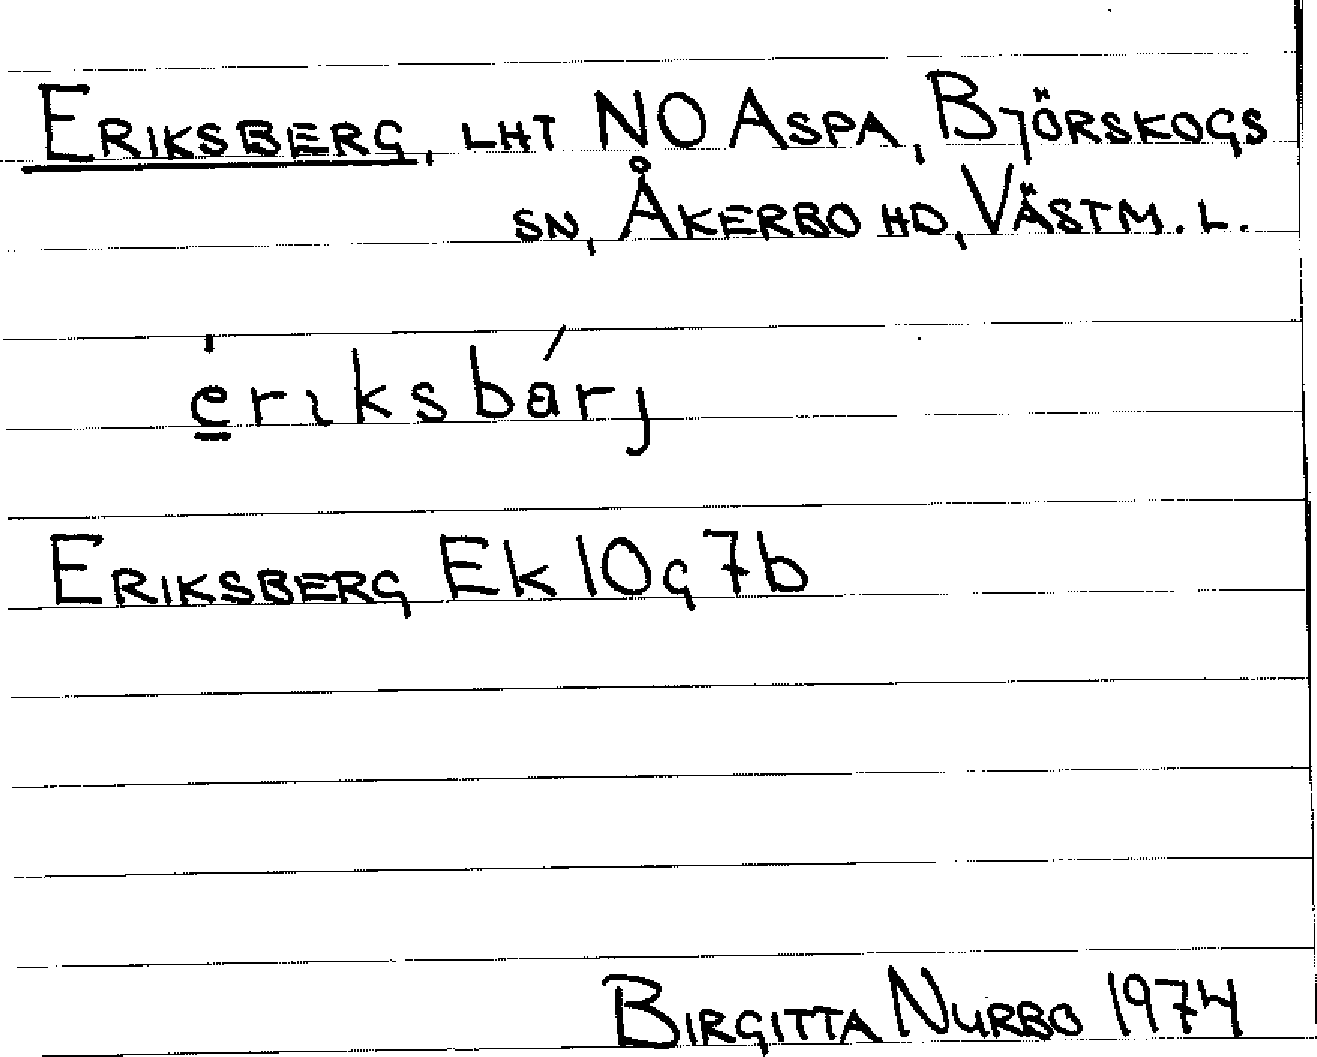 ERIKSBERG, LHT NO ASPA, BJÖRSKOGS
SN, ÅKERBO HD, VÄSTM. L.
e̲̍rıksbárȷ
ERIKSBERG Ek 10g 7b
BIRGITTA NURBO 1974